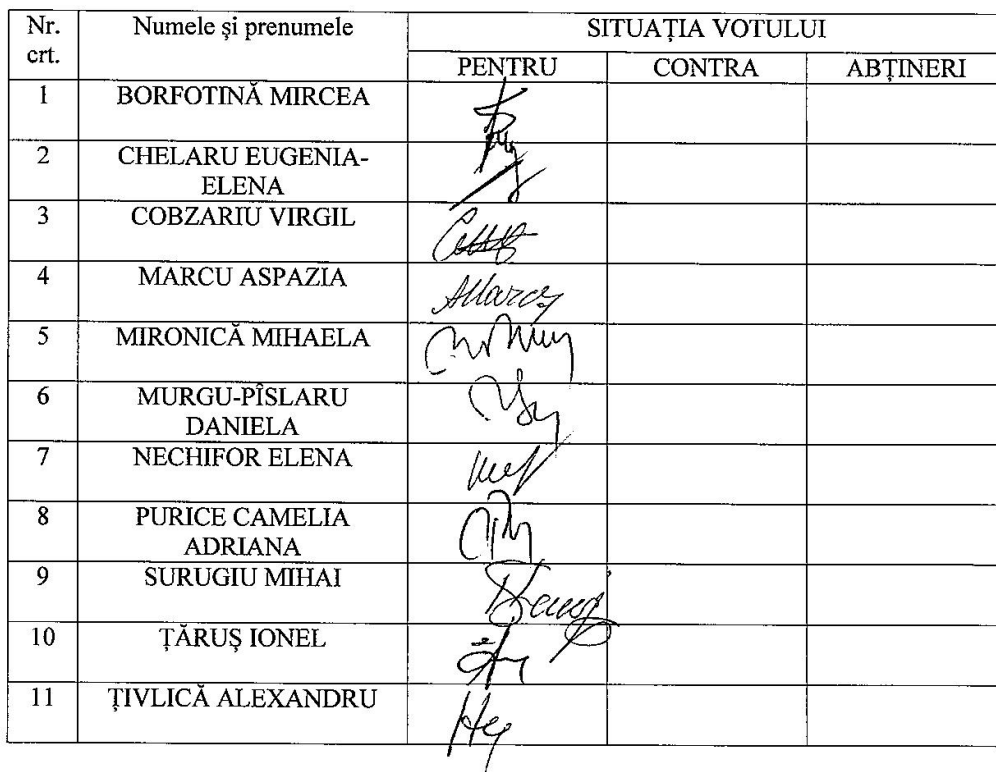 Nr. crt. Numele și prenumele SITUAȚIA VOTULUI
PENTRU CONTRA ABȚINERI
1 BORFOTINĂ MIRCEA
2 CHELARU EUGENIA-
ELENA
3 COBZARIU VIRGIL
4 MARCU ASPAZIA
AMarcu
5 MIRONICĂ MIHAELA
6 MURGU-PÎSLARU
DANIELA
7 NECHIFOR ELENA
8 PURICE CAMELIA
ADRIANA
9 SURUGIU MIHAI
10 ȚĂRUȘ IONEL
11 ȚIVLICĂ ALEXANDRU